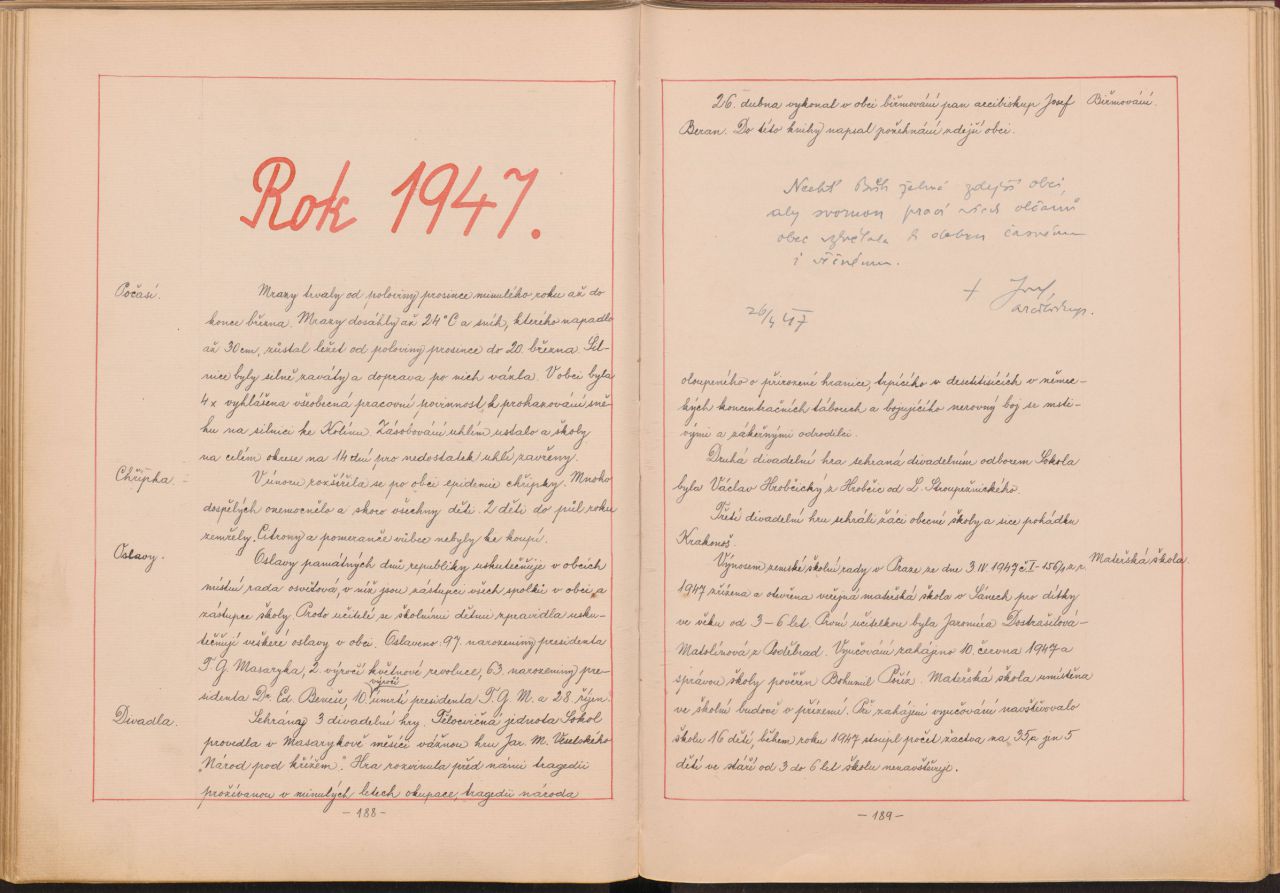 Rok 1947.
Počasí.
Mrazy trvaly od poloviny prosince minulého roku až do
konce března. Mrazy dosáhly až 24°C a sníh, kterého napadlo
až 30 cm, zůstal ležet od poloviny prosince do 20. března. Sil-
nice byly silně zaváty a doprava po nich vázla. V obci byla
4x vyhlášena všeobecná pracovní povinnost k prohazování sně-
hu na silnici ke Kolínu. Zásobování uhlím ustalo a školy
na celém okrese na 14 dní pro nedostatek uhlí zavřeny.
Chřipka.
V únoru rozšířila se po obci epidemie chřipky. Mnoho
dospělých onemocnělo a skoro všechny děti. 2 děti do půl roku
zemřely. Citrony a pomeranče vůbec nebyly ke koupi.
Oslavy.
Oslavy památných dnů republiky uskutečňuje v obcích
místní rada osvětová, v níž jsou zástupci všech spolků v obci a
zástupce školy. Proto učitelé se školními dětmi zpravidla usku-
tečňují veškeré oslavy v obci. Oslaveno: 97. narozeniny presidenta
T. G. Masaryka, 2. výročí květnové revoluce, 63. narozeniny pre-
sidenta Dr. Ed. Beneše, 10. výročí úmrtí presidenta T. G. M. a 28. říjen.
Divadla.
Sehrány 3 divadelní hry. Tělocvičná jednota Sokol
provedla v Masarykově měsíci vážnou hru Jar. M. Veselského
"Národ pod křížem". Hra rozvinuta před námi tragedii
prožívanou v minulých letech okupace, tragedii národa
- 188 -
26. dubna vykonal v obci biřmování pan arcibiskup Josef
Biřmování.
Beran. Do této knihy napsal požehnání zdejší obci.
Nechť Bůh žehná zdejší obci,
aby svornou prací všech občanů
obec vzkvétala k dobru časnému
i věčnému.
+ Josef,
arcibiskup.
26/4 47
oloupeného o přirozené hranice, trpícího v desetitisících v němec-
kých koncentračních táborech a bojujícího nerovný boj se msti-
vými a zákeřnými odrodilci.
Druhá divadelní hra sehraná divadelním odborem Sokola
byla Václav Hrobčický z Hrobčic od L. Stroupežnického.
Třetí divadelní hru sehráli žáci obecné školy a sice pohádku
Krakonoš.
Výnosem zemské školní rady v Praze ze dne 3. IV. 1947 č. I-156/2 z r.
Mateřská škola.
1947 zřízena a otevřena veřejná mateřská škola v Sánech pro dítky
ve věku od 3-6 let. První učitelkou byla Jaromíra Dostrašilová-
Matolínová z Poděbrad. Vyučování zahájeno 10. června 1947 a
správou školy pověřen Bohumil Poříz. Mateřská škola umístěna
ve školní budově v přízemí. Při zahájení vyučování navštěvovalo
školu 16 dětí, během roku 1947 stoupl počet žactva na 35, a jen 5
dětí ve stáří od 3 do 6 let školu nenavštěvují.
- 189 -